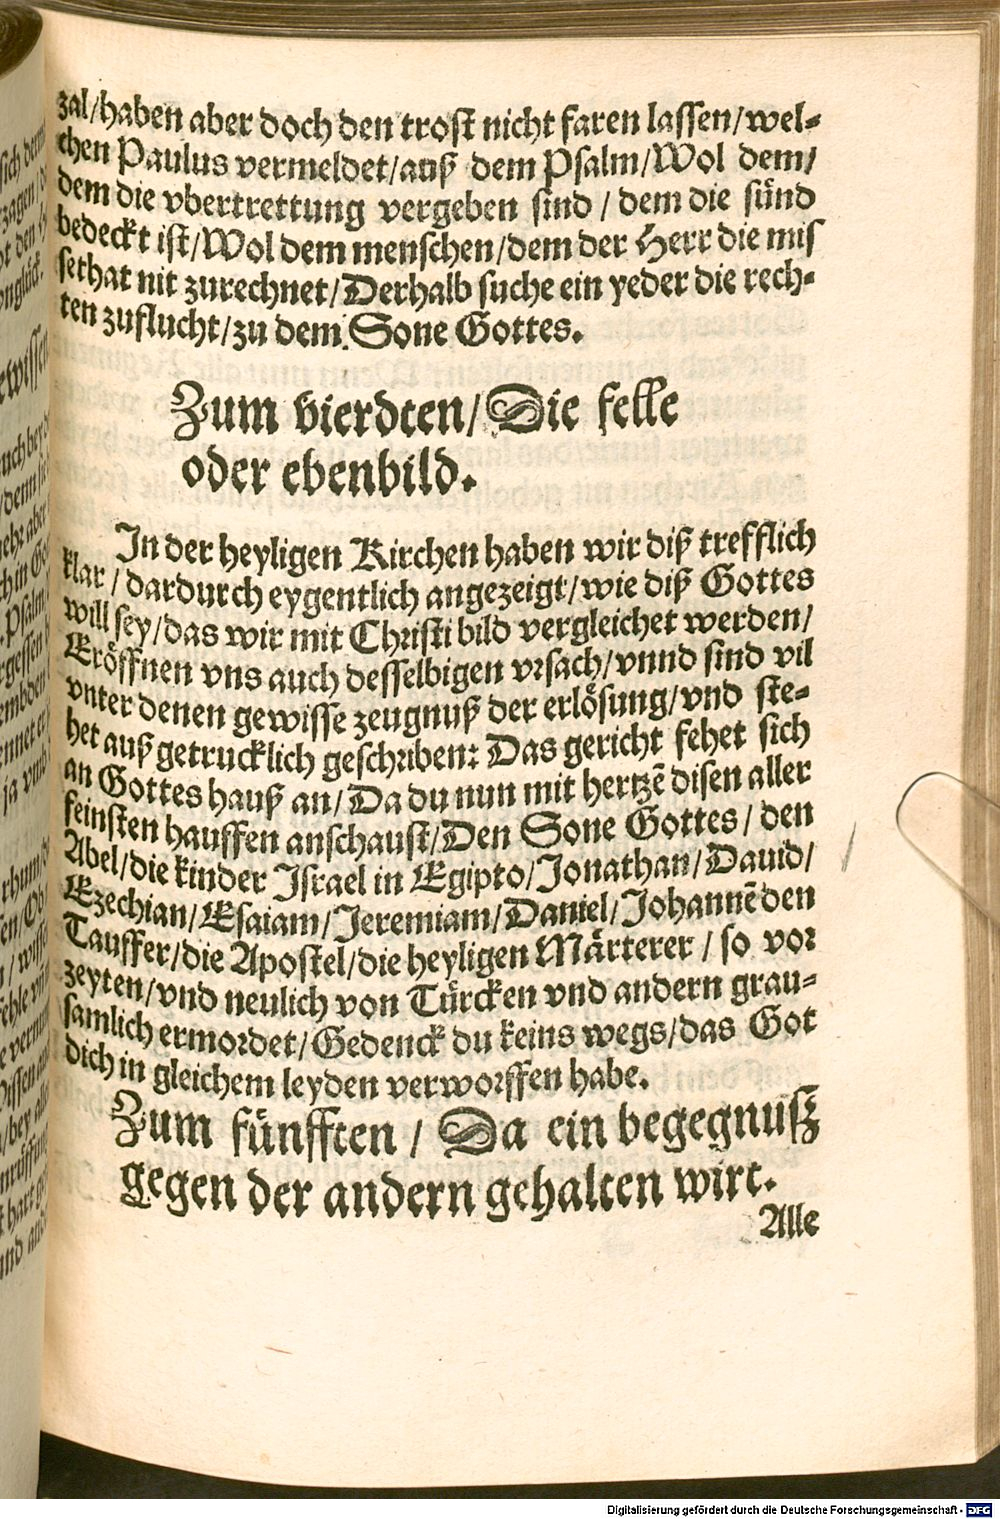 zal/haben aber doch den trost nicht faren lassen/wel-
chen Paulus vermeldet/auß dem Psalm/Wol dem/
dem die vbertrettung vergeben sind / dem die sünd
bedeckt ist/Wol dem menschen/dem der Herr die mis
sethat nit zurechnet/Derhalb suche ein yeder die rech-
ten zuflucht/zu dem Sone Gottes.
Zum vierdten/Die felle
oder ebenbild.
In der heyligen Kirchen haben wir diß trefflich
klar / dardurch eygentlich angezeigt/wie diß Gottes
will sey/das wir mit Christi bild vergleichet werden/
Eröffnen vns auch desselbigen vrsach/vnnd sind vil
vnter denen gewisse zeugnuß der erlösung/vnd ste-
het auß getrucklich geschriben: Das gericht fehet sich
an Gottes hauß an/Da du nun mit hertzē disen aller
feinsten hauffen anschaust/Den Sone Gottes/ den
Abel/die kinder Israel in Egipto/Jonathan/Dauid/
Ezechian/Esaiam/Jeremiam/Daniel/Johannē den
Tauffer/die Apostel/die heyligen Märterer / so vor
zeyten/vnd neulich von Türcken vnd andern grau-
samlich ermordet/Gedenck du keins wegs/das Got
dich in gleichem leyden verworffen habe.
Zum fünfften / Da ein begegnuß
gegen der andern gehalten wirt.
Alle
Digitalisierung gefördert durch die Deutsche Forschungsgemeinschaft - DFG